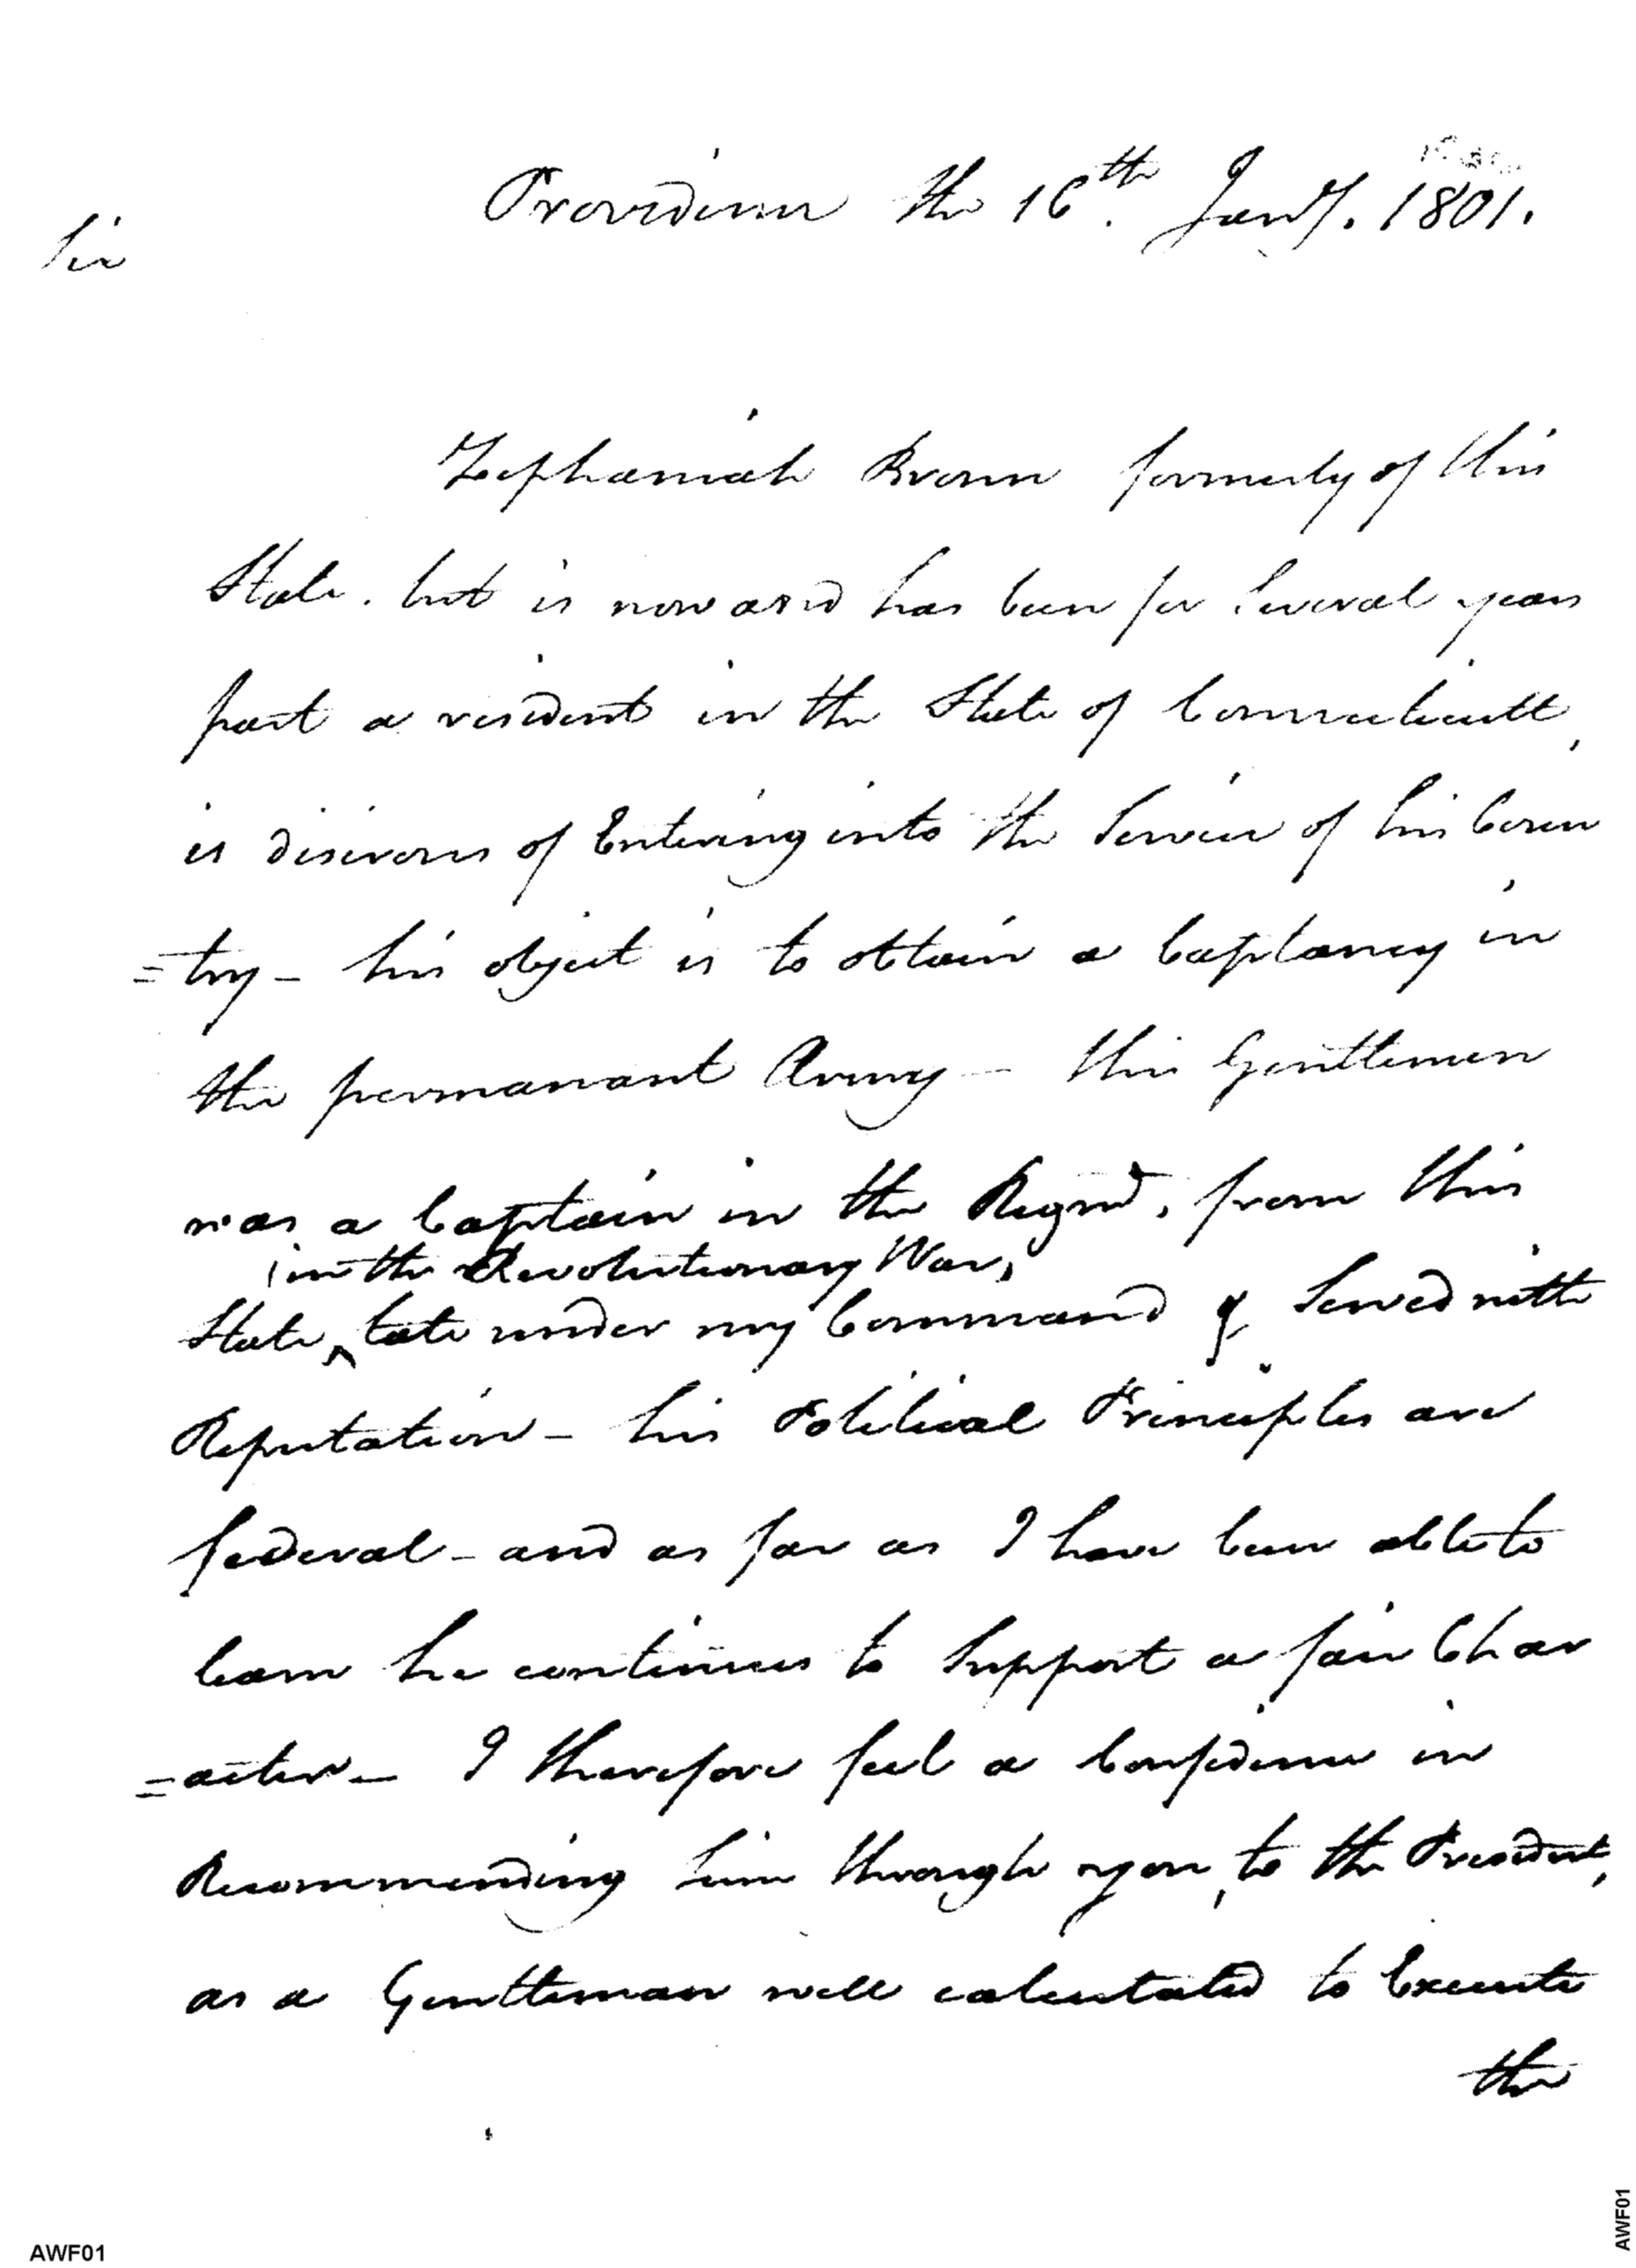 Providence the 16th. Jany. 1801.
Sir
Zephaniah Brown formerly of this
State. but is now and has been for Several years
past a resident in the State of Connecticutt,
is disirous of Entering into the Service of his Coun
=try - his object is to obtain a Captancy in
the permanant Army - this Gentlemen
was a Captain in the Regmt. from this
(in the Revolutionary War,
State, late under my Command & Served with
Reputation - his Political Principles are
federal - and as far as I have been able to
learn he continues to Support a fair Char
=acter - I therefore feel a Confidence in
Recommending him through you, to the President,
as a Gentleman well calculated to Execute
the
AWF01
AWF01